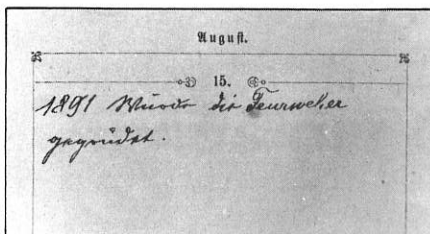 August.
15.
1891 Wurde die Feurwehr
gegründet.